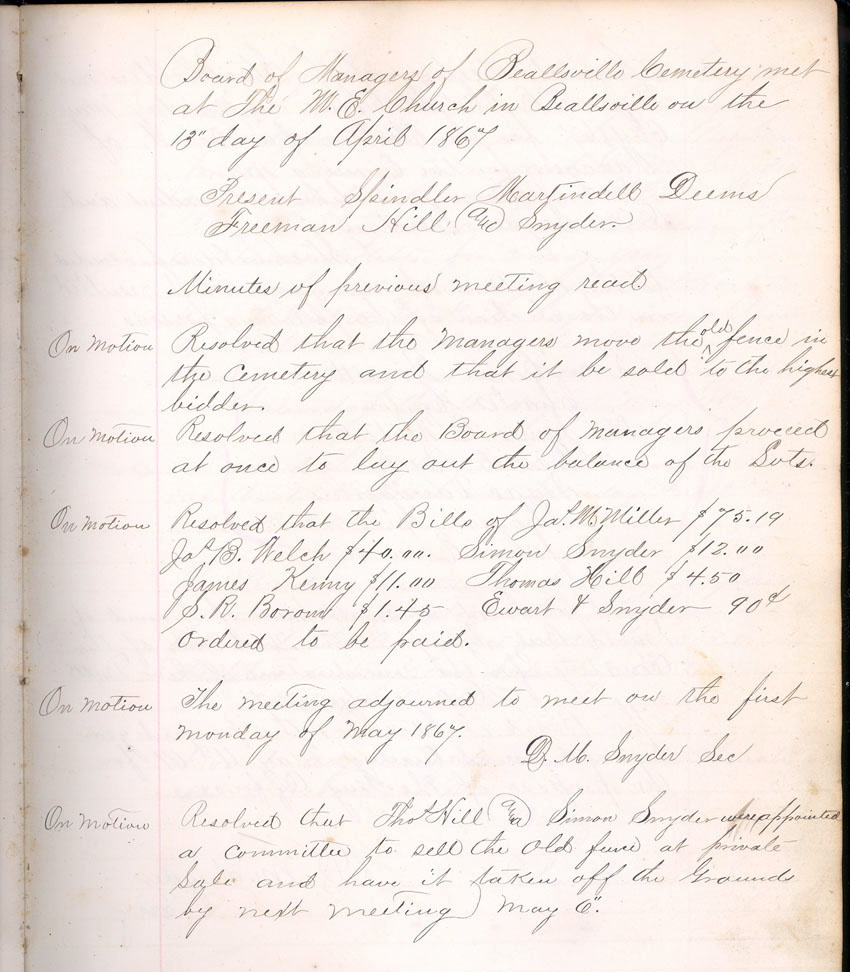 Board of Managers of Beallsville Cemetery met
at The M. E. Church in Beallsville on the
13" day of April 1867
Present Spindler Martindell Deems
Freeman Hill and Snyder.
Minutes of previous meeting read
On Motion Resolved that the Managers move the old fence in
the Cemetery and that it be sold to the highest
bidder.
On Motion Resolved that the Board of Managers proceed
at once to lay out the balance of the Lots.
On Motion Resolved that the Bills of Jas. M. Miller $75.19
Jas B. Welch $40.00. Simon Snyder $12.00
James Kenny $11.00 Thomas Hill $4.50
S. R. Borom $1.45 Ewart & Snyder 90¢
Ordered to be paid.
On Motion The meeting adjourned to meet on the first
Monday of May 1867.
D. M. Snyder Sec
On Motion Resolved that Thos Hill and Simon Snyder were appointed
a committee to sell the old fence at private
Sale and have it taken off the Grounds
by next meeting) May 6".